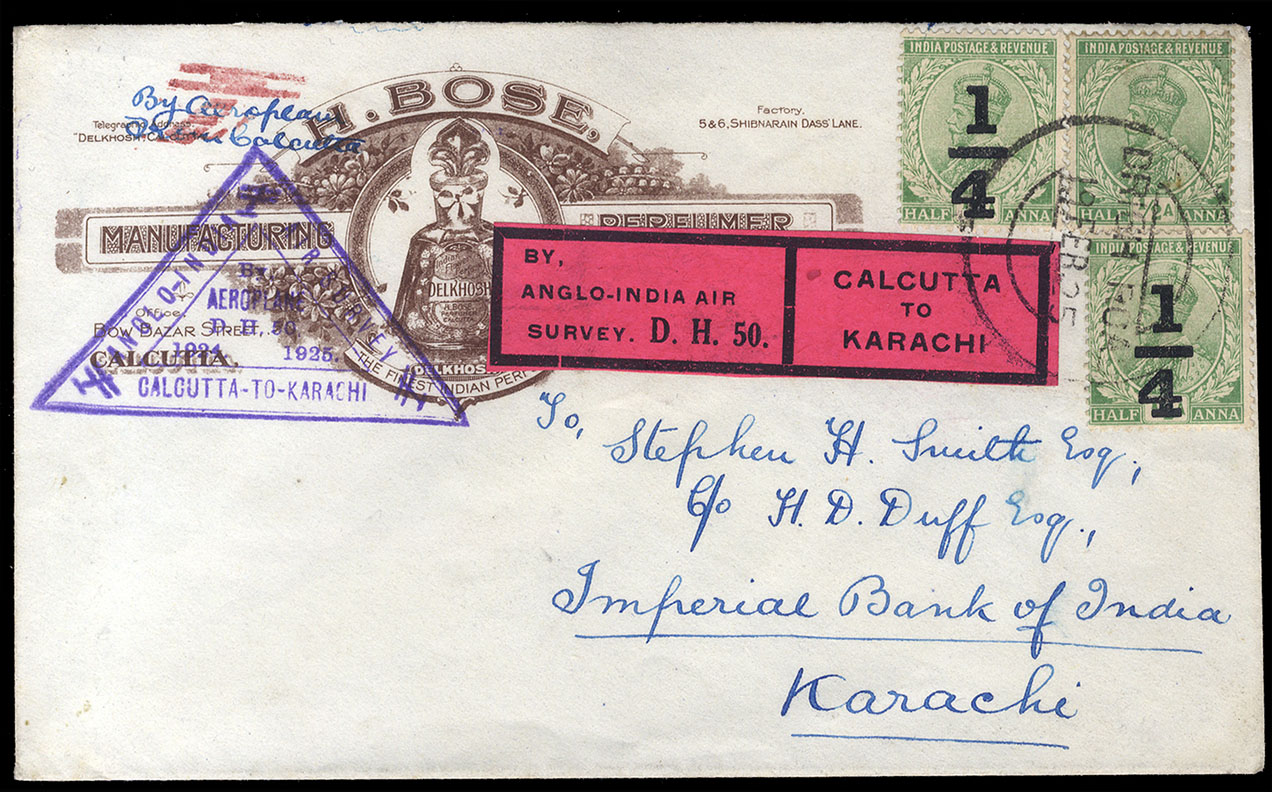 By Aeroplane
From Calcutta
Telegraphic Address:
"DELKHOSH", CALCUTTA
H. BOSE,
Factory,
5 & 6, SHIBNARAIN DASS' LANE.
MANUFACTURING PERFUMER
DELKHOSH
Office,
BOW BAZAR STREET,
CALCUTTA.
DELKHOSH
THE FINEST INDIAN PERF
ANGLO-INDIA AIR SURVEY
By
AEROPLANE
D. H. 50.
1924 1925.
CALCUTTA-TO-KARACHI
BY,
ANGLO-INDIA AIR
SURVEY. D. H. 50.
CALCUTTA
TO
KARACHI
INDIA POSTAGE & REVENUE
1/4
HALF ANNA
INDIA POSTAGE & REVENUE
HALF 1/2A ANNA
INDIA POSTAGE & REVENUE
1/4
HALF ANNA
FEB 25
To,
Stephen H. Smith Esq.,
c/o H. D. Duff Esq.,
Imperial Bank of India
Karachi